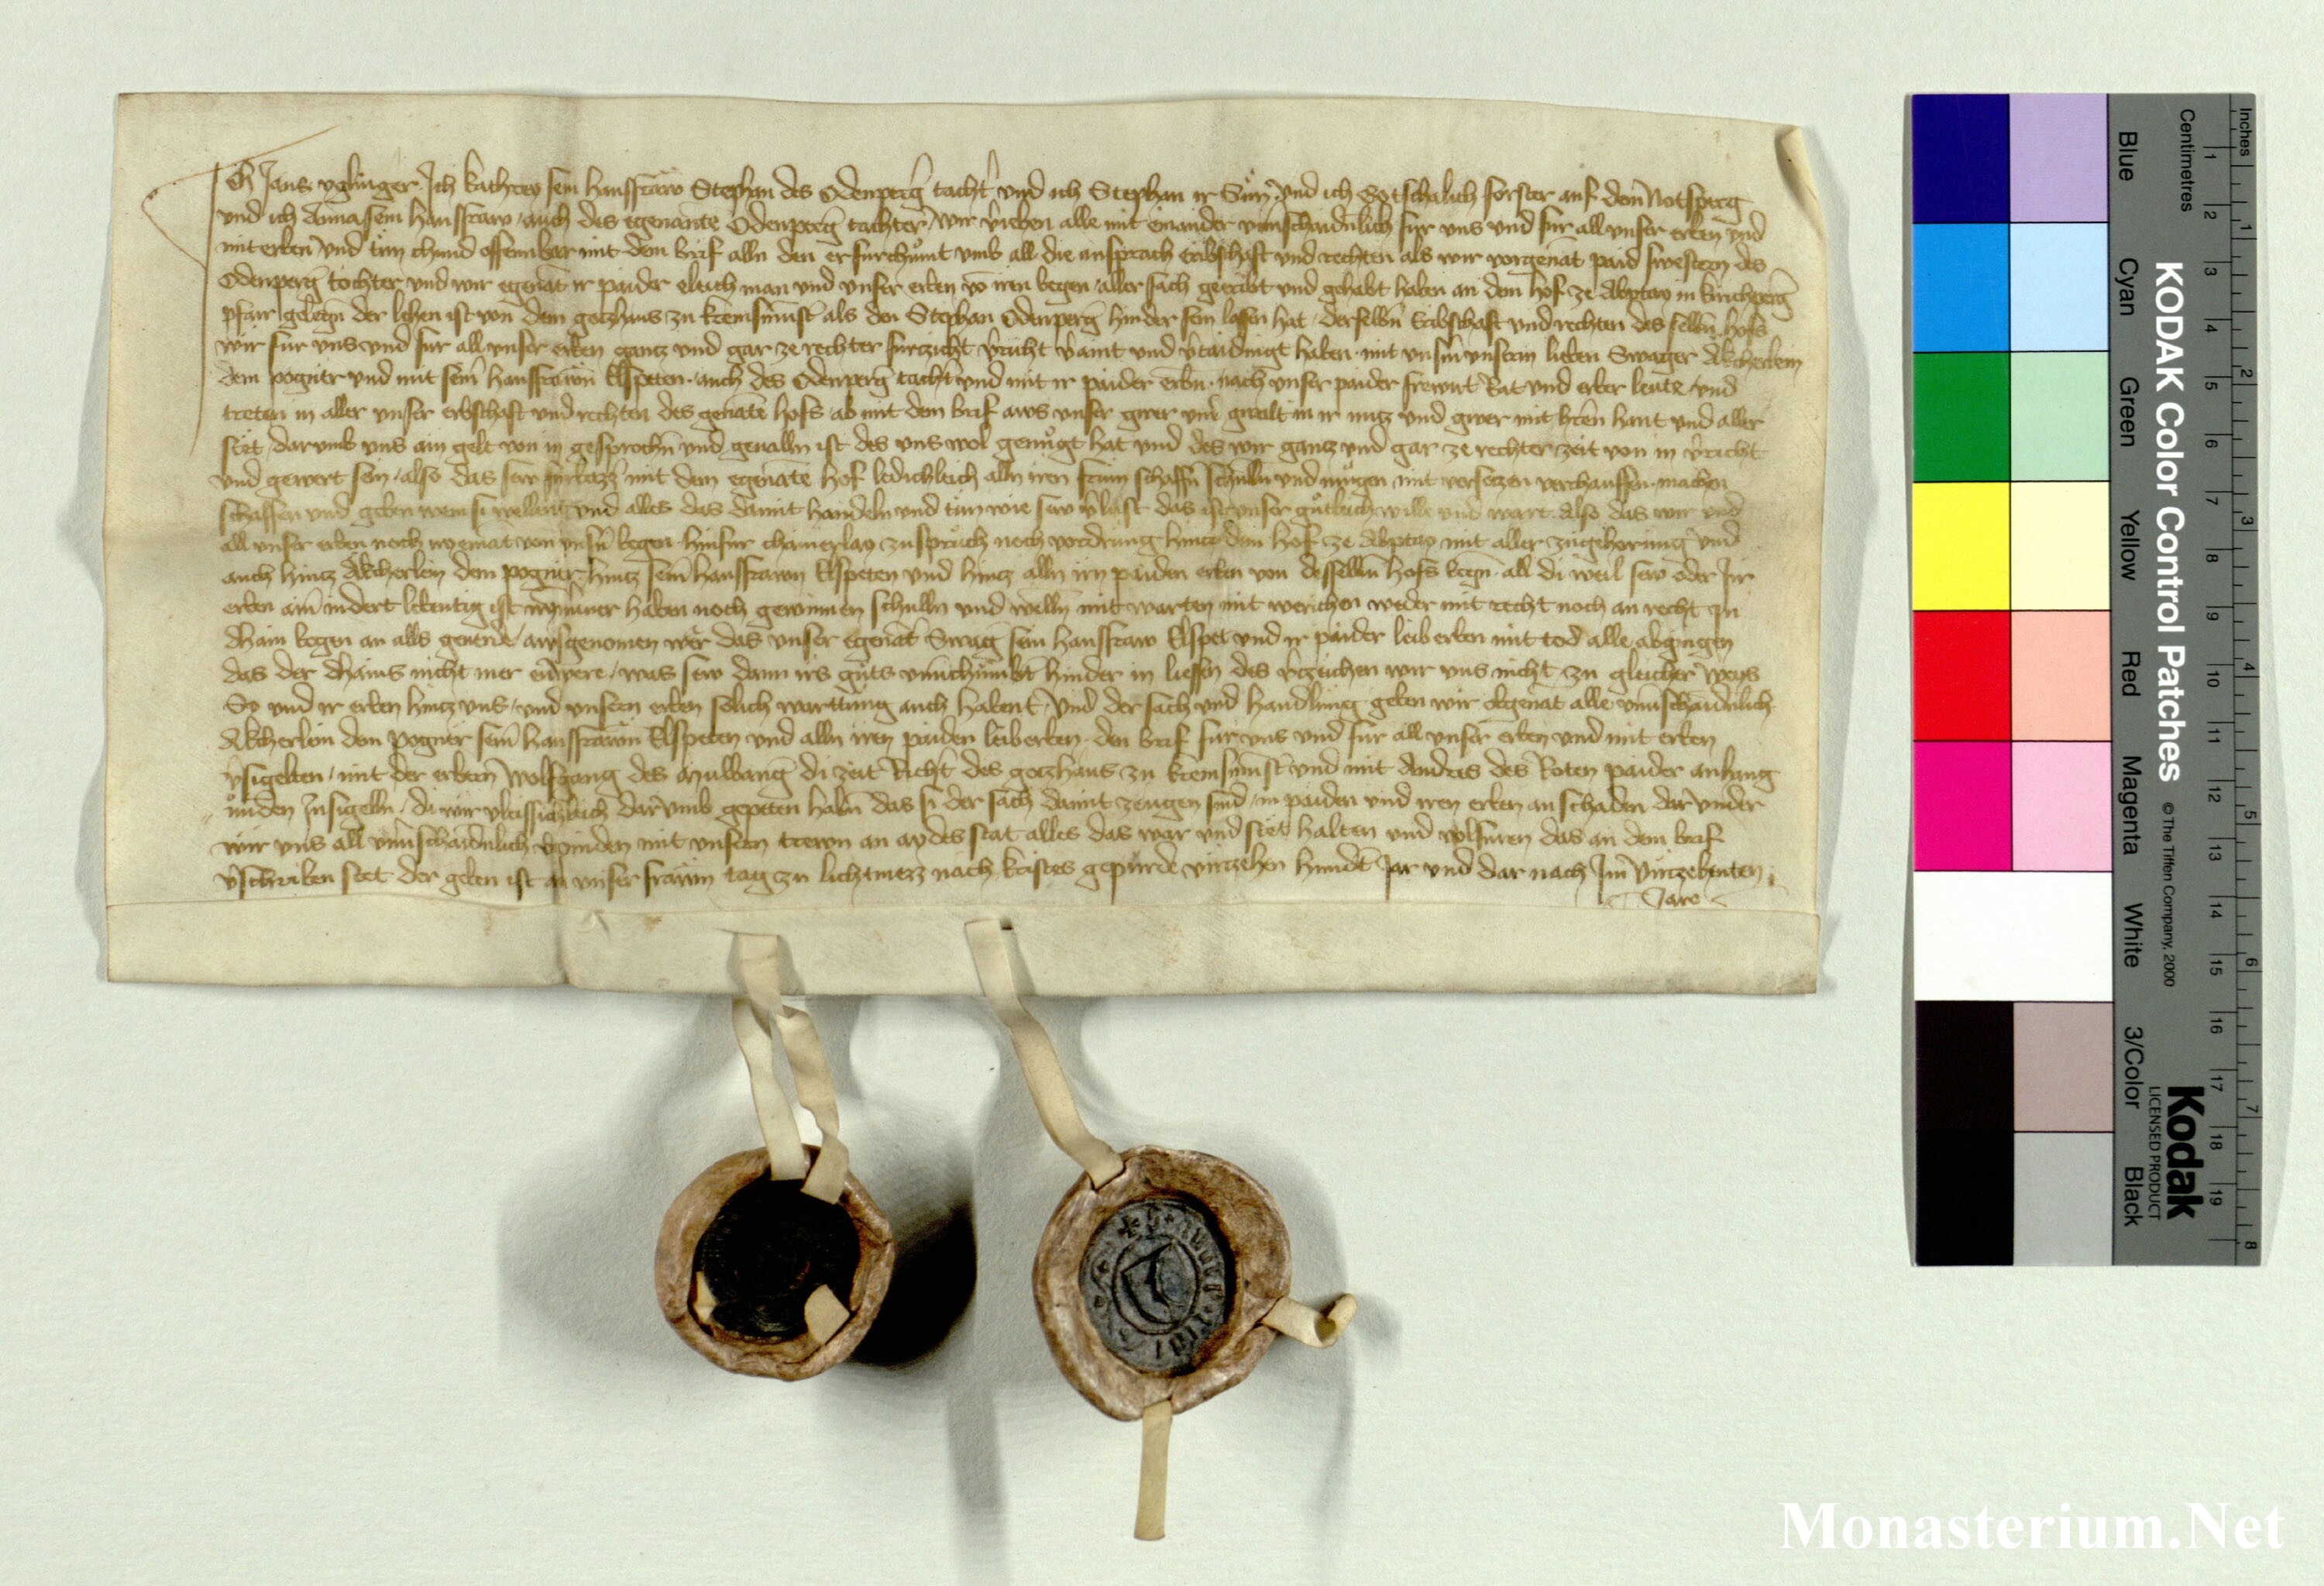 Ich Jans uglinger Ich kathrey sein hausfraw Stephan des Odenperg̃ tacht̃ und ich Stephan ir Sun und ich Gotschalich forster auf dem Notsperg
und ich Anna sein hausfraw auch des egenante Odenperg̃ tachter wir v̾iehen alle mit enander unu̾schaidnlich fur uns und fur all unser erben und
mit erben und tun chund offennbar mit dem brif alln den er furchumt umb all die ansprach erbschaft und rechten als wir vorgenāt paid swestern des
Odenperg̃ tochter und wir egenāt ir paider eleich man und unser erben vō iren wegen aller sach geerbt und gehabt haben an dem hof ze Abptay in kirchperg̃
pfarr gelegn̄ der lehen ist von dem gotzhaus zu kremsmūst̾ als den Stephan Odenperg̃ hinder sein lassen hat derselbn̄ Erbschaft und rechten des selbn̄ hofs
wir fur uns und fur all unser erben gancz und gar ze rechter furczicht v̾richt v̾aint und v̾taidingt haben mit unserm lieben Swager Akcherlein
dem pogner und mit seim hausfrawn Elspeten auch des Odenperg̃ tacht̾ und mit ir paider erbn̄ nach unser paider frewnt Rat und erber leute und
treten in aller unser erbschaft und rechten des genāte hofs ab mit dem brif aws unser gwer un̄ gwalt in ir nucz und gwer mit hren hant und aller
stet darumb uns ain gelt von in gesprochn̄ und geualln ist des uns wol genugt hat und des wir gancz und gar ze rechter zeit von in v̾richt
und gewert sein also das sew furbazz mit dem egenāte hof ledichleich alln iren frum schaffn̄ schulln und mugen mit versetzen verchauffen machen
schaffen und geben wem si wellent und alles das damit handeln und tun wie sew v̾last das ist unser gutleich wille und wart Also das wir und
all unser erben noch nyemāt von unsn̄ wegen hinfur chainerlay zuspruch noch vordrung hincz dem hof ze Abptay mit aller zugehorung und
auch hincz Akcherlein dem pogner hincz seim hausfrawn Elspeten und hincz alln irn paiden erben von desselbn̄ hofs wegn̄ all di weil sew oder Ir
erben ain indert lebentig ist nymmer haben noch gewinnen schulln und welln̄ mit warten mit werichen weder mit recht noch an recht In
dhain wegen an alls geuerde awsgenomen wer das unser egenāt Swag̃ sein hausfraw Elspet und ir paider leib erben mit tod alle abgiengen
das der dhains nicht mer enwere was sew dann irs guts unu̾chumbt hinder in liessn des v̾czeichen wir uns nicht zu gleicher weys
Sy und ir erben hincz uns und unsern erben solich warttung auch habent Und der sach und handlūg geben wir obgenāt alle unu̾schaidnlich
Akcherlein dem pogner seim hausfrawn Elspeten und alln iren paiden leib erben den brif fur uns und fur all unser erben und mit erben
v̾sigelten mit der erbern Wolfgang des Mulwang̃ di zeit Richt̾ des gotzhaus zu kremsmūst̾ und mit Andres des Roten paider anhang
unden Insigelln di wir vleissichleich darumb gepeten habn̄ das si der sach damit zeugen sind in paiden und iren erben an schaden dar under
wir uns all unu̾schaidnlich v̾pinden mit unsern trewn an aydes stat alles das war und stet halten und volfuren das an dem brif
v̾schriben stet der geben ist an unser frawn tag zu liechtmezz nach kristes gepurde virczehen hundt̾ Jar und dar nach Im virczehenten
Jare
KODAK Color Control Patches © The Tiffen Company, 2000
Kodak
LICENSED PRODUCT
Blue Cyan Green Yellow Red Magenta White 3/Color Black
Centimetres 1 2 3 4 5 6 7 8 9 10 11 12 13 14 15 16 17 18 19
Inches 1 2 3 4 5 6 7 8
Monasterium.Net